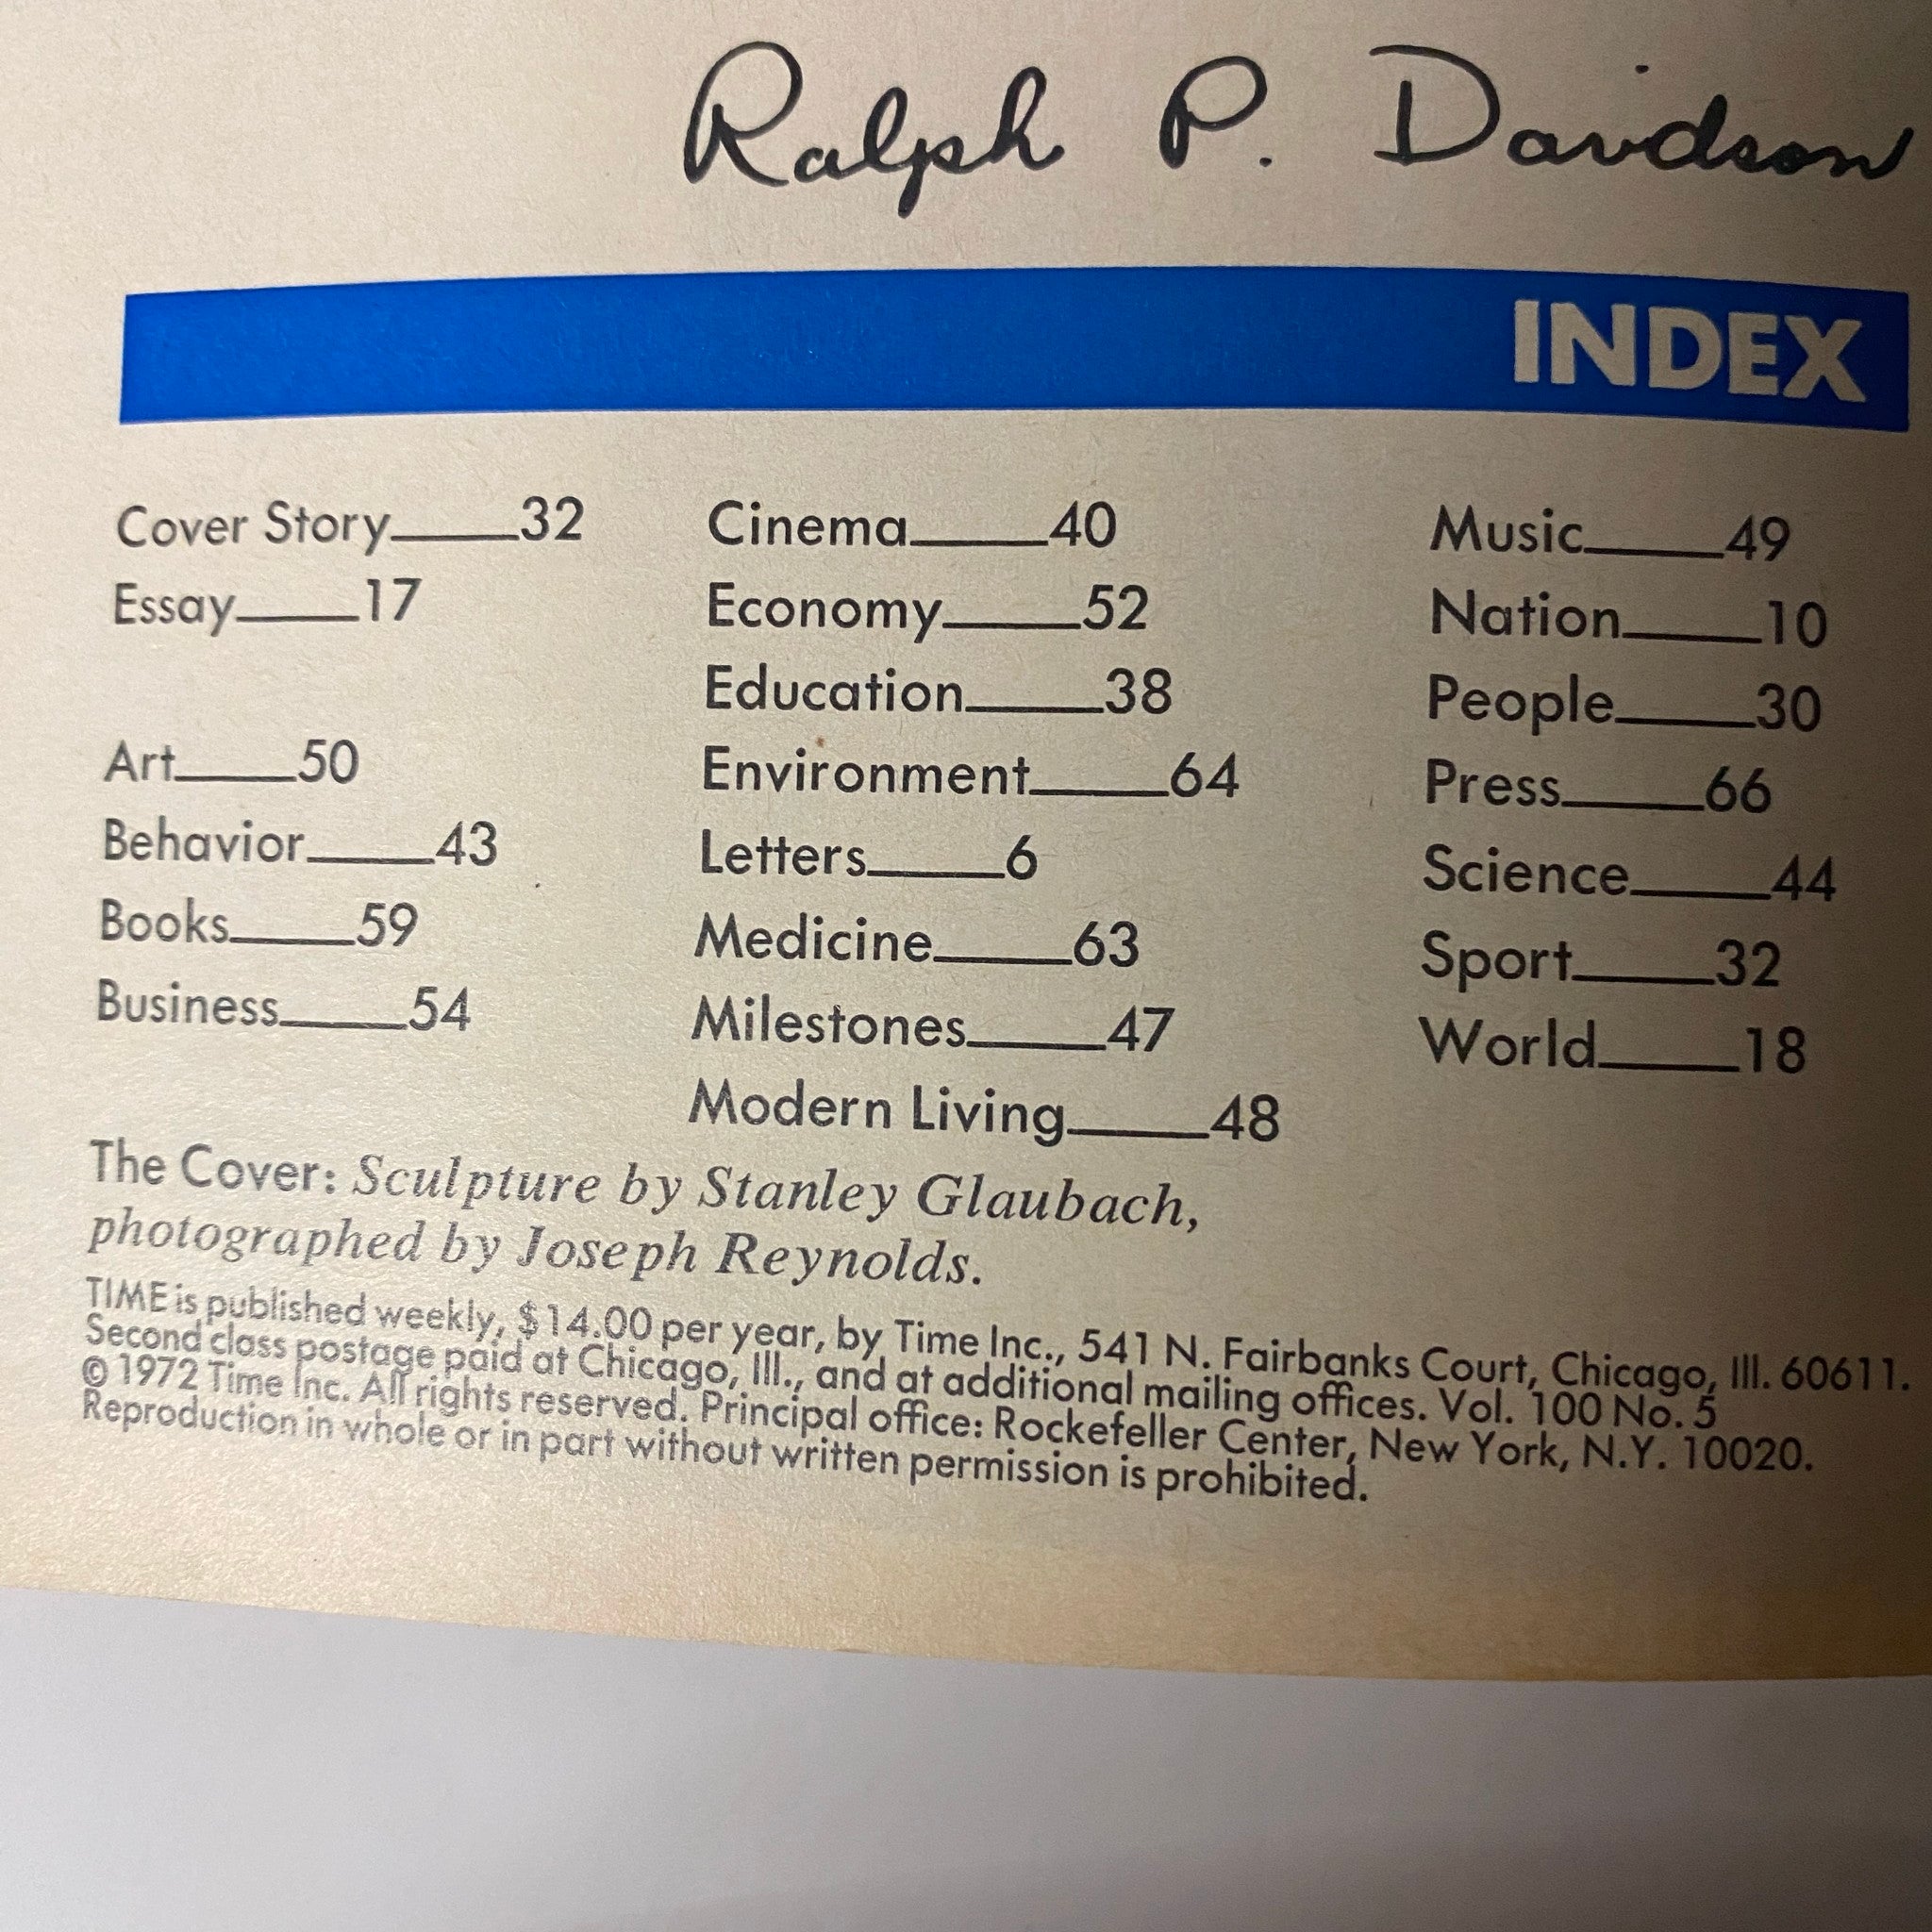 Ralph P. Davidson
INDEX
Cover Story____32
Essay____17
Art____50
Behavior____43
Books____59
Business____54
Cinema____40
Economy____52
Education____38
Environment____64
Letters____6
Medicine____63
Milestones____47
Modern Living____48
Music____49
Nation____10
People____30
Press____66
Science____44
Sport____32
World____18
The Cover: Sculpture by Stanley Glaubach,
photographed by Joseph Reynolds.
TIME is published weekly, $14.00 per year, by Time Inc., 541 N. Fairbanks Court, Chicago, Ill. 60611.
Second class postage paid at Chicago, Ill., and at additional mailing offices. Vol. 100 No. 5
© 1972 Time Inc. All rights reserved. Principal office: Rockefeller Center, New York, N.Y. 10020.
Reproduction in whole or in part without written permission is prohibited.